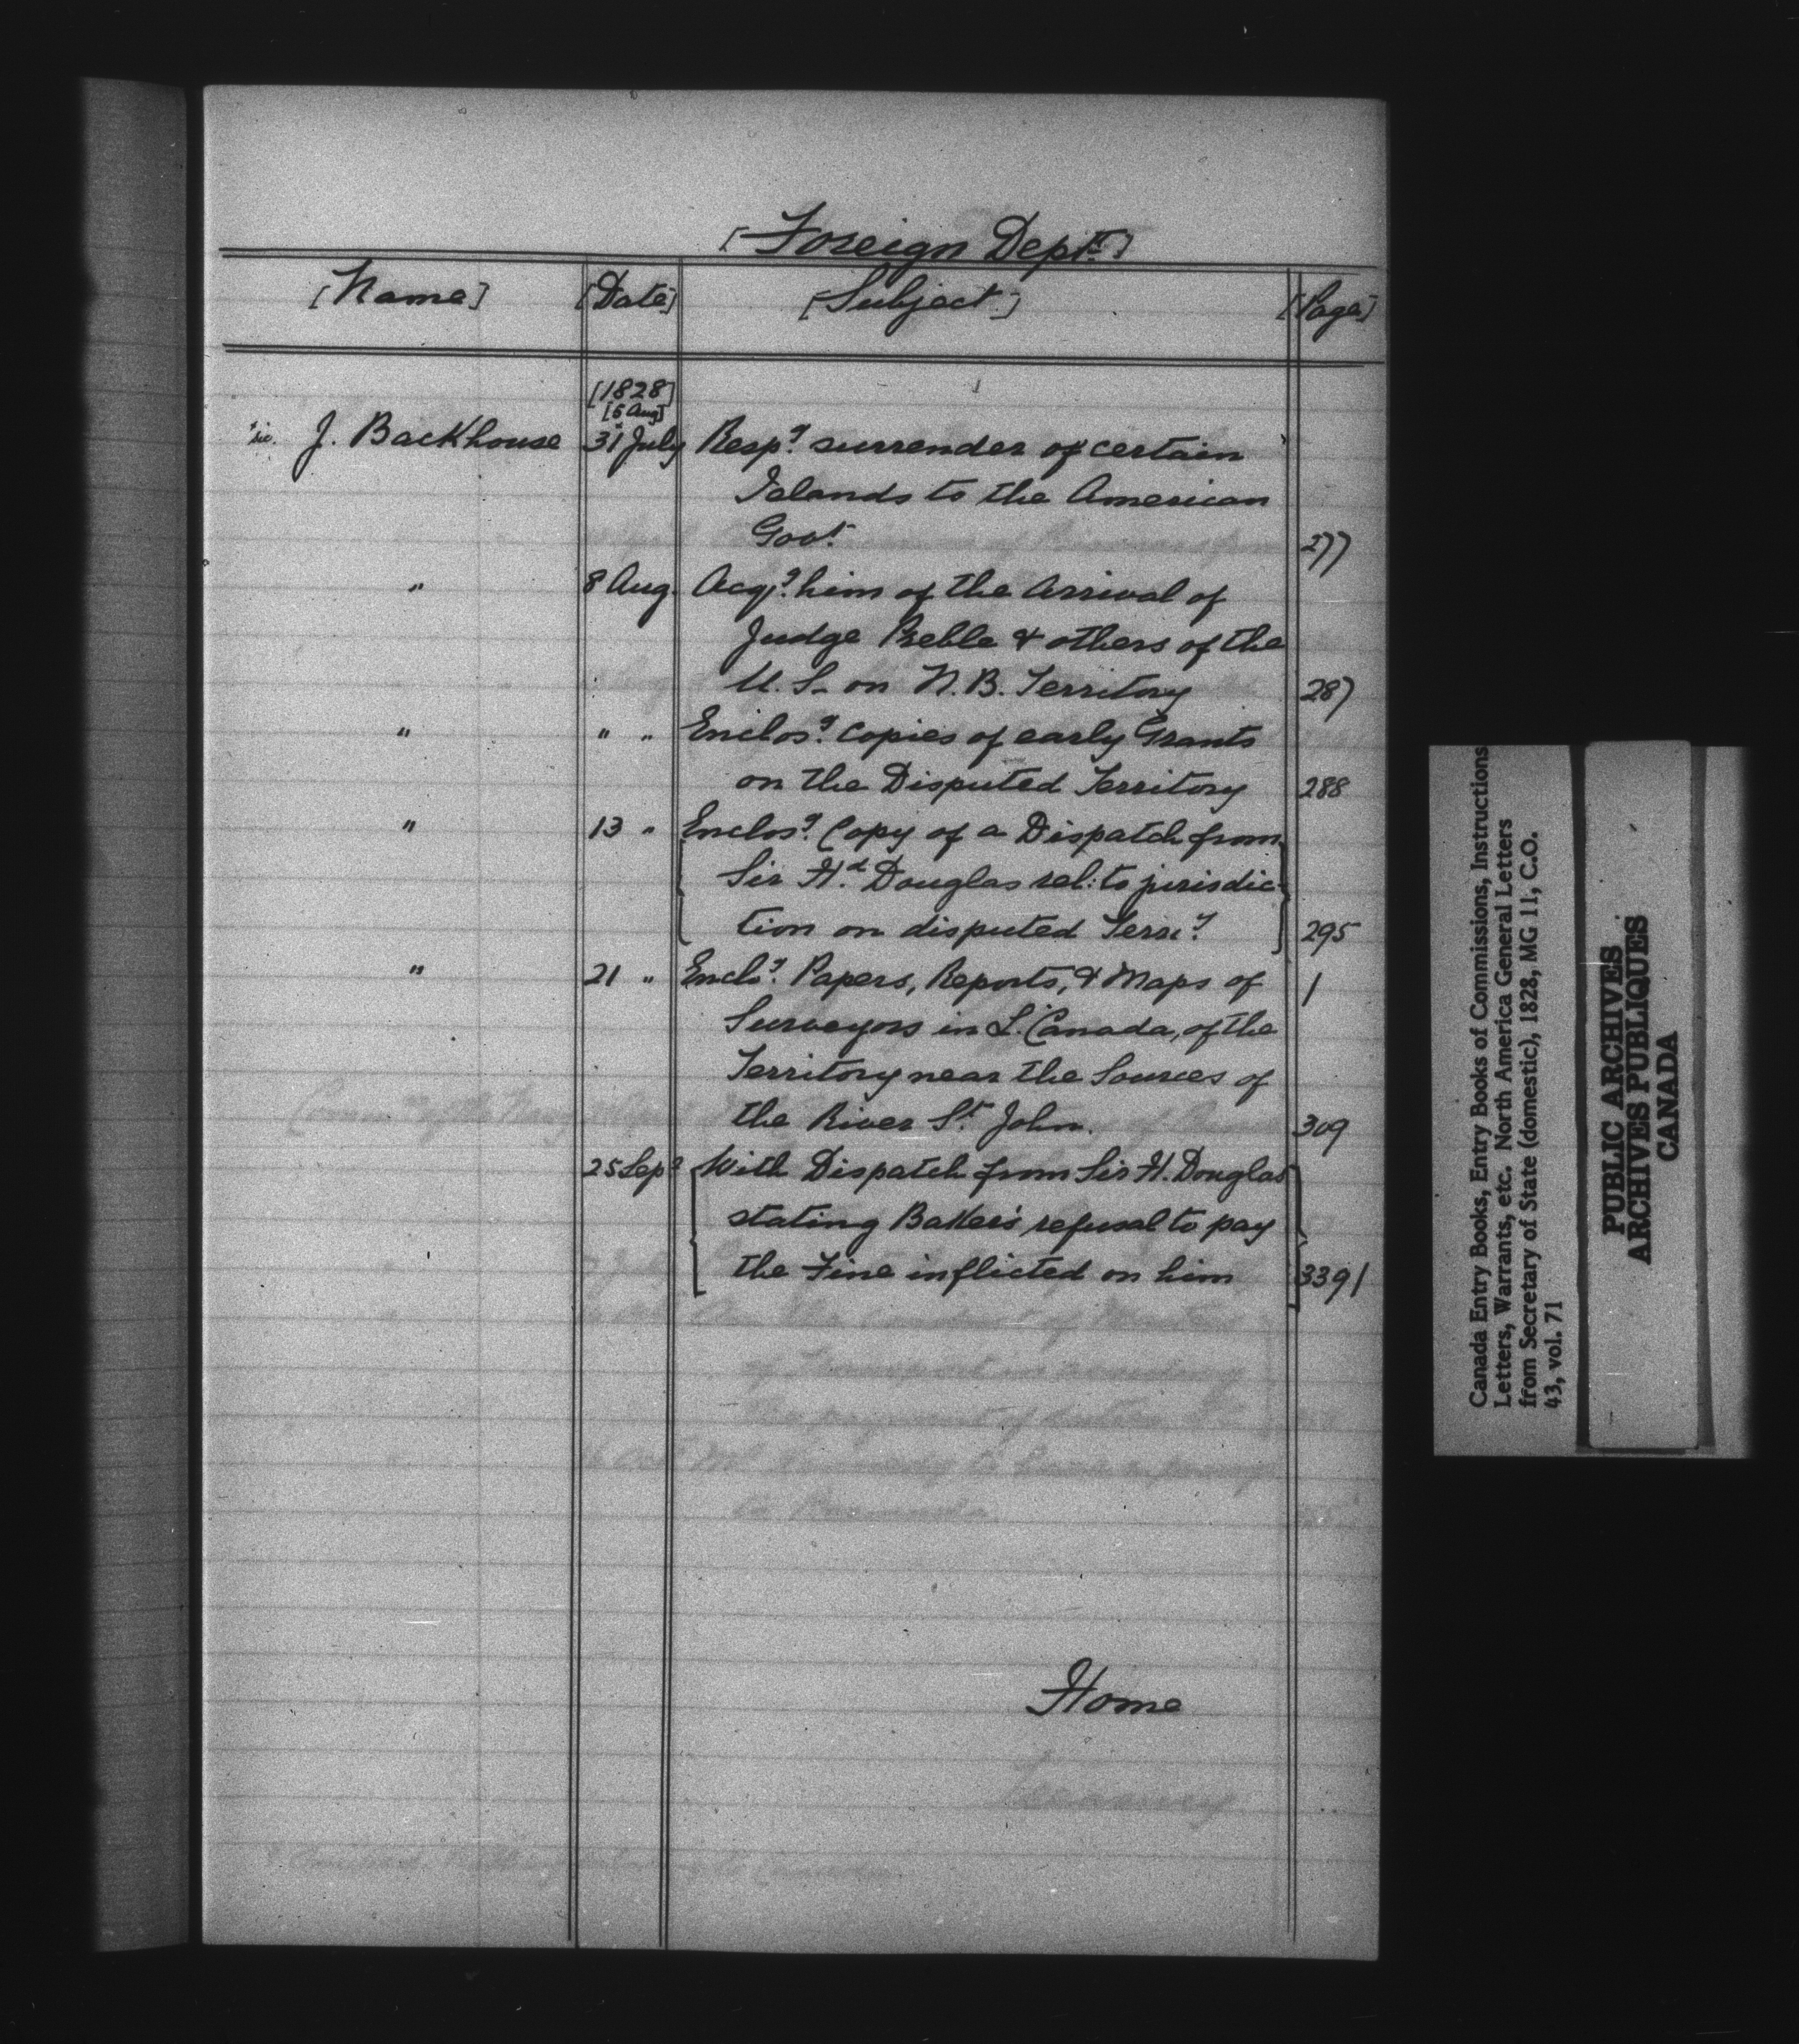 [Foreign Dept.]
[Name] [Date] [Subject] [Page]
[1828]
[5 Aug]
J. Backhouse 31 July Respg. surrender of certain
Islands to the American
Govt. 277
" 8 Aug. Acqg. him of the arrival of
Judge Preble & others of the
U. S. on N. B. Territory 287
" " " Enclosg. copies of early Grants
on the Disputed Territory 288
" 13 " Enclosg. Copy of a Dispatch from
Sir Hd. Douglas rel: to jurisdic-
tion on disputed Terry. 295
" 21 " Enclg. Papers, Reports, & Maps of 1
Surveyors in L. Canada, of the
Territory near the Sources of
the River St. John. 309
25 Sep With Dispatch from Sir H. Douglas
stating Baker's refusal to pay
the Fine inflicted on him 3391
Home
Canada Entry Books, Entry Books of Commissions, Instructions
Letters, Warrants, etc. North America General Letters
from Secretary of State (domestic), 1828, MG 11, C.O.
43, vol. 71
PUBLIC ARCHIVES
ARCHIVES PUBLIQUES
CANADA